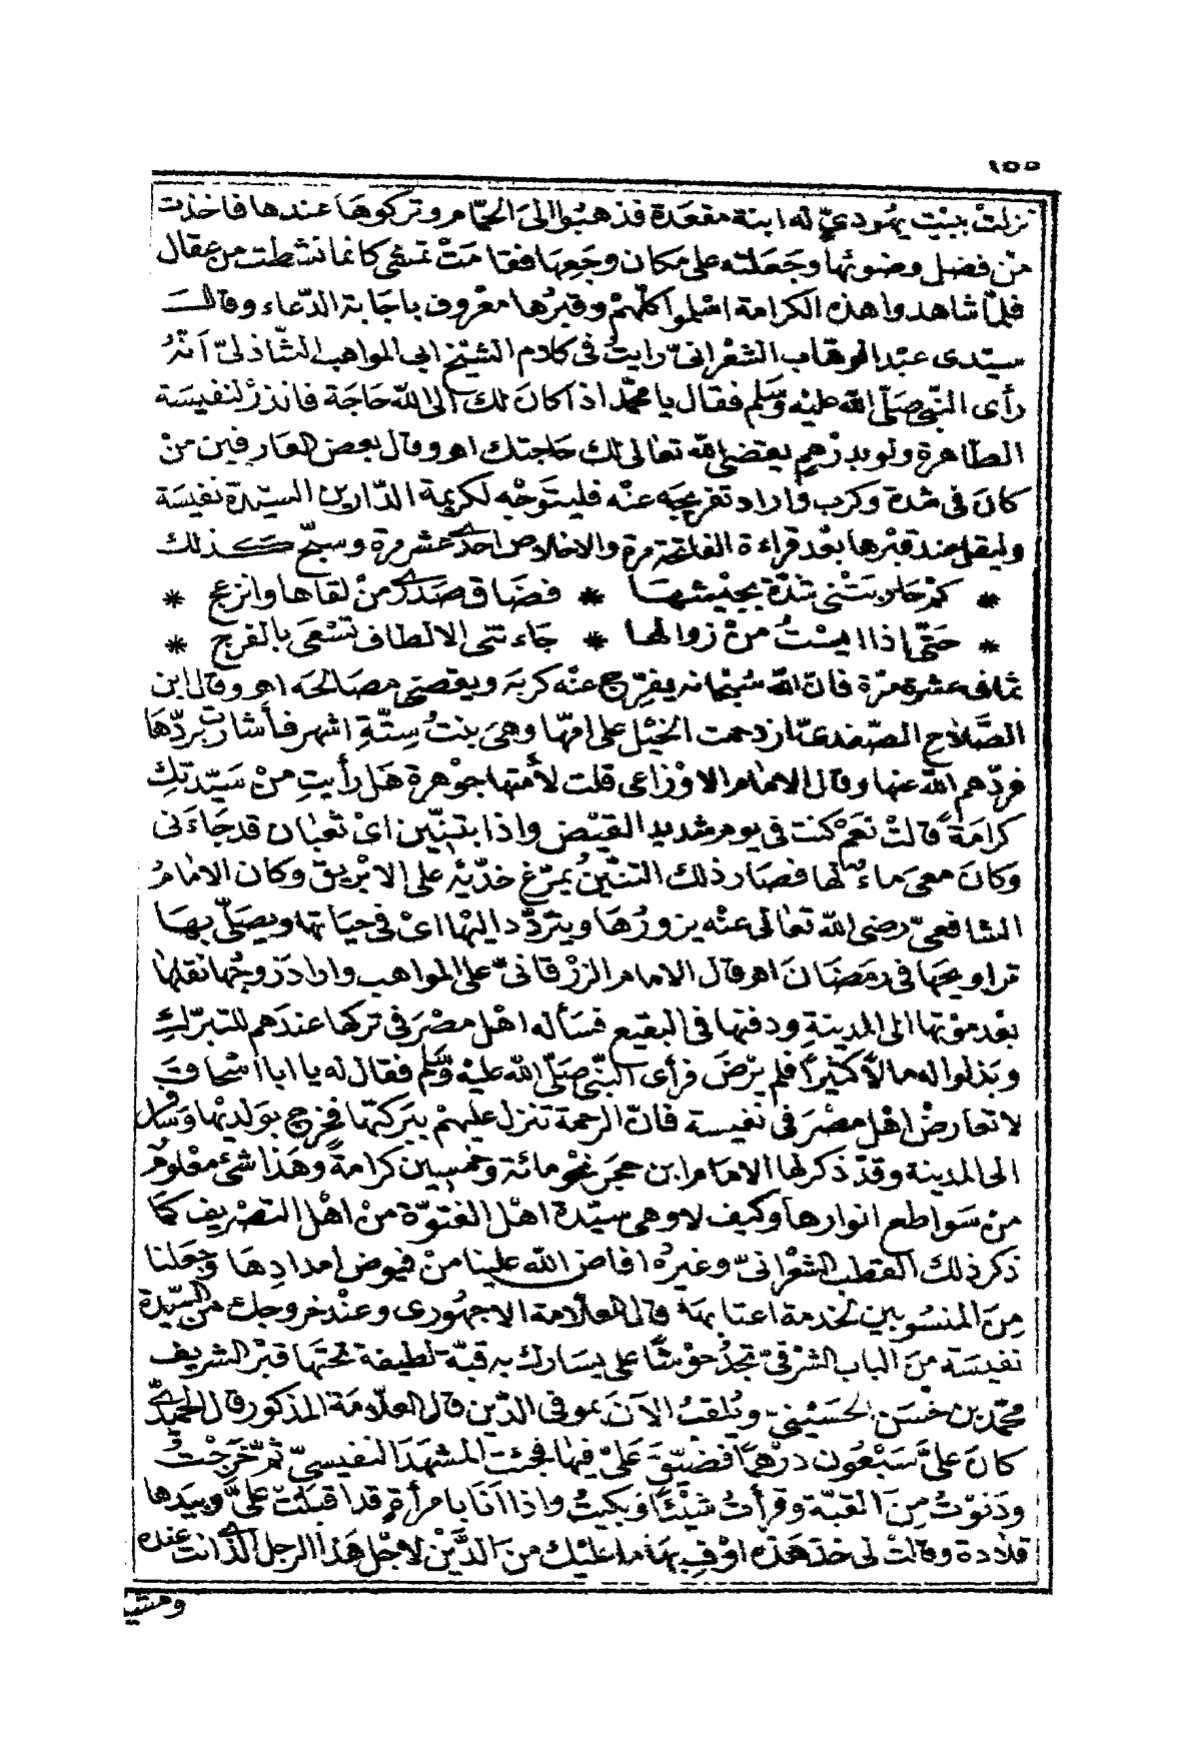 ١٥٥
نزلتْ ببيْتِ يهُوديٍّ له ابنة مقعَدة فذهبُوا الىَ الحمّام وتركوهَا عندها فاخذت
منْ فضل وضوئها وجَعَلته على مكان وجَعِهَا فقامَتْ تمشى كانما نشطت من عقال
فلمّا شاهدوا هذه الكرامة اسْلموا كلّهمْ وقبرُها معْروف باجَابة الدّعاء وقالــَ
سيّدى عبْد الوهّاب الشعْرانىّ رايتُ فى كلام الشّيْخ ابى المواهب الشّاذلىّ اَنّهُ
رأى النّبى صَلّى الله عليْه وَسَلم فقال يا محمّد اذا كانَ لك الى الله حَاجَة فانذرْ لنفيسَة
الطّاهرة ولو بدرْهمٍ يقتضى الله تعالى لك حَاجتك اهـ وقال بعض العارفين منْ
كانَ فى شدّة وكرب وَاراد تفريجَه عنْه فليتوَجّه لكريمة الدّارين السّيّدة نفيسَة
وليقل عند قبْرها بعْد قراءة الفاتحة مرة والاخلاص احْدى عشر مرة وسبّحْ كـذلك
* كمْ حَاربتْنى شدّة بجيْشهــَا * فضَاق صَدْرى منْ لقاها وانزعج *
* حَتّى اذا ايسْتُ منْ زوالهــا * جَاءتنى الالطاف تسْعَى بالفرج *
ثمانى عشرة مرّة فانّ الله سُبْحانه يفرّج عنْه كربَه ويقضى مصَالحَه اهـ وقال ابن
الصَّلاح الصّفدى لمّا ازدحمت الخيْل على امّها وهىَ بنتُ سِتّةِ اشهر فأشارت بردّهَا
فردّهم الله عنها وقال الامام الاوْزاعى قلت لأمتها جوْهرة هَل رأيتِ منْ سَيّدتكِ
كرامَةً قالتْ نعَمْ كنت فى يوم شديد القيْض واذا بتنّين اىْ ثعبان قد جَاءَنى
وَكانَ معىَ ماءٌ لها فصَار ذلك التنّينُ يمرّغ خدّيْه على الابْريق وكان الامامُ
الشافعىّ رضى الله تعالى عنْه يزورُهَا ويتردّد اليْها اىْ فى حيَاتها ويصَلّى بهــَا
تراويحَهَا فى رمَضَانَ اهـ قال الامام الزرْقانىّ على المواهب وارادَ زوجُها نقلها
بعْد موْتها الى المدينةِ ودفنها فى البقيع فسَأله اهْل مصْرَ فى تركها عندَهم للتبرّكِ
وبَذلوا له مالاً كثيراً فلم يرْضَ فرأى النّبىّ صَلّى الله عليْه وَسَلّم فقال له يا ابا اسْحاقــَ
لا تعارضْ اهْل مصْرَ فى نفيسة فانّ الرحمة تنزل عليْهمْ ببَركتهَا فخرج بوَلديْها وَسَافر
الى المدينة وقدْ ذكر لها الامام ابن حجَر نحْو مائة وَخمسين كرامةً وهَذا شىْءٌ معْلومٌ
منْ سَواطع انوارهَا وَكيف لا وهى سيّدة اهْل الفتوّة منْ اهْل التصْريف كمَا
ذكر ذلك القطب الشعْرانىّ وغيرُه افاض الله علينا منْ فيوض امدادِهَا وَجَعَلنا
مِنَ المنسُوبين لخدمة اعتابهَا قال العلامة الاجهُورى وعنْد خروجك من السّيّدة
نفيسَة منَ الباب الشرْقىّ تجدُ حوْشا على يسَارك به قبّة لطيفة تحتهَا قبْر الشريف
محمّد بن حَسَن الحسَيْنىّ ويُلقبُ الآنَ بموفى الدّين قال العلّامَة المذكور قال لى
كانَ علىَّ سَبْعُون درْهمًا فضَيّقَ عَلىّ فيها فجئت المشهَدَ النفيسىّ ثمّ خَرَجْتُ
ودَنوْتُ مِنَ القبّة وقرأتُ شيْئًا وَبكيتُ واذا اَنا بامرأةٍ قد اقبَلتْ علىَّ وبيَدها
قلادة وقالتْ لى خذ هَذه اوْف بهَا ما عليْك منَ الدَّيْن لاجْل هَذا الرجل الّذى انت عنده